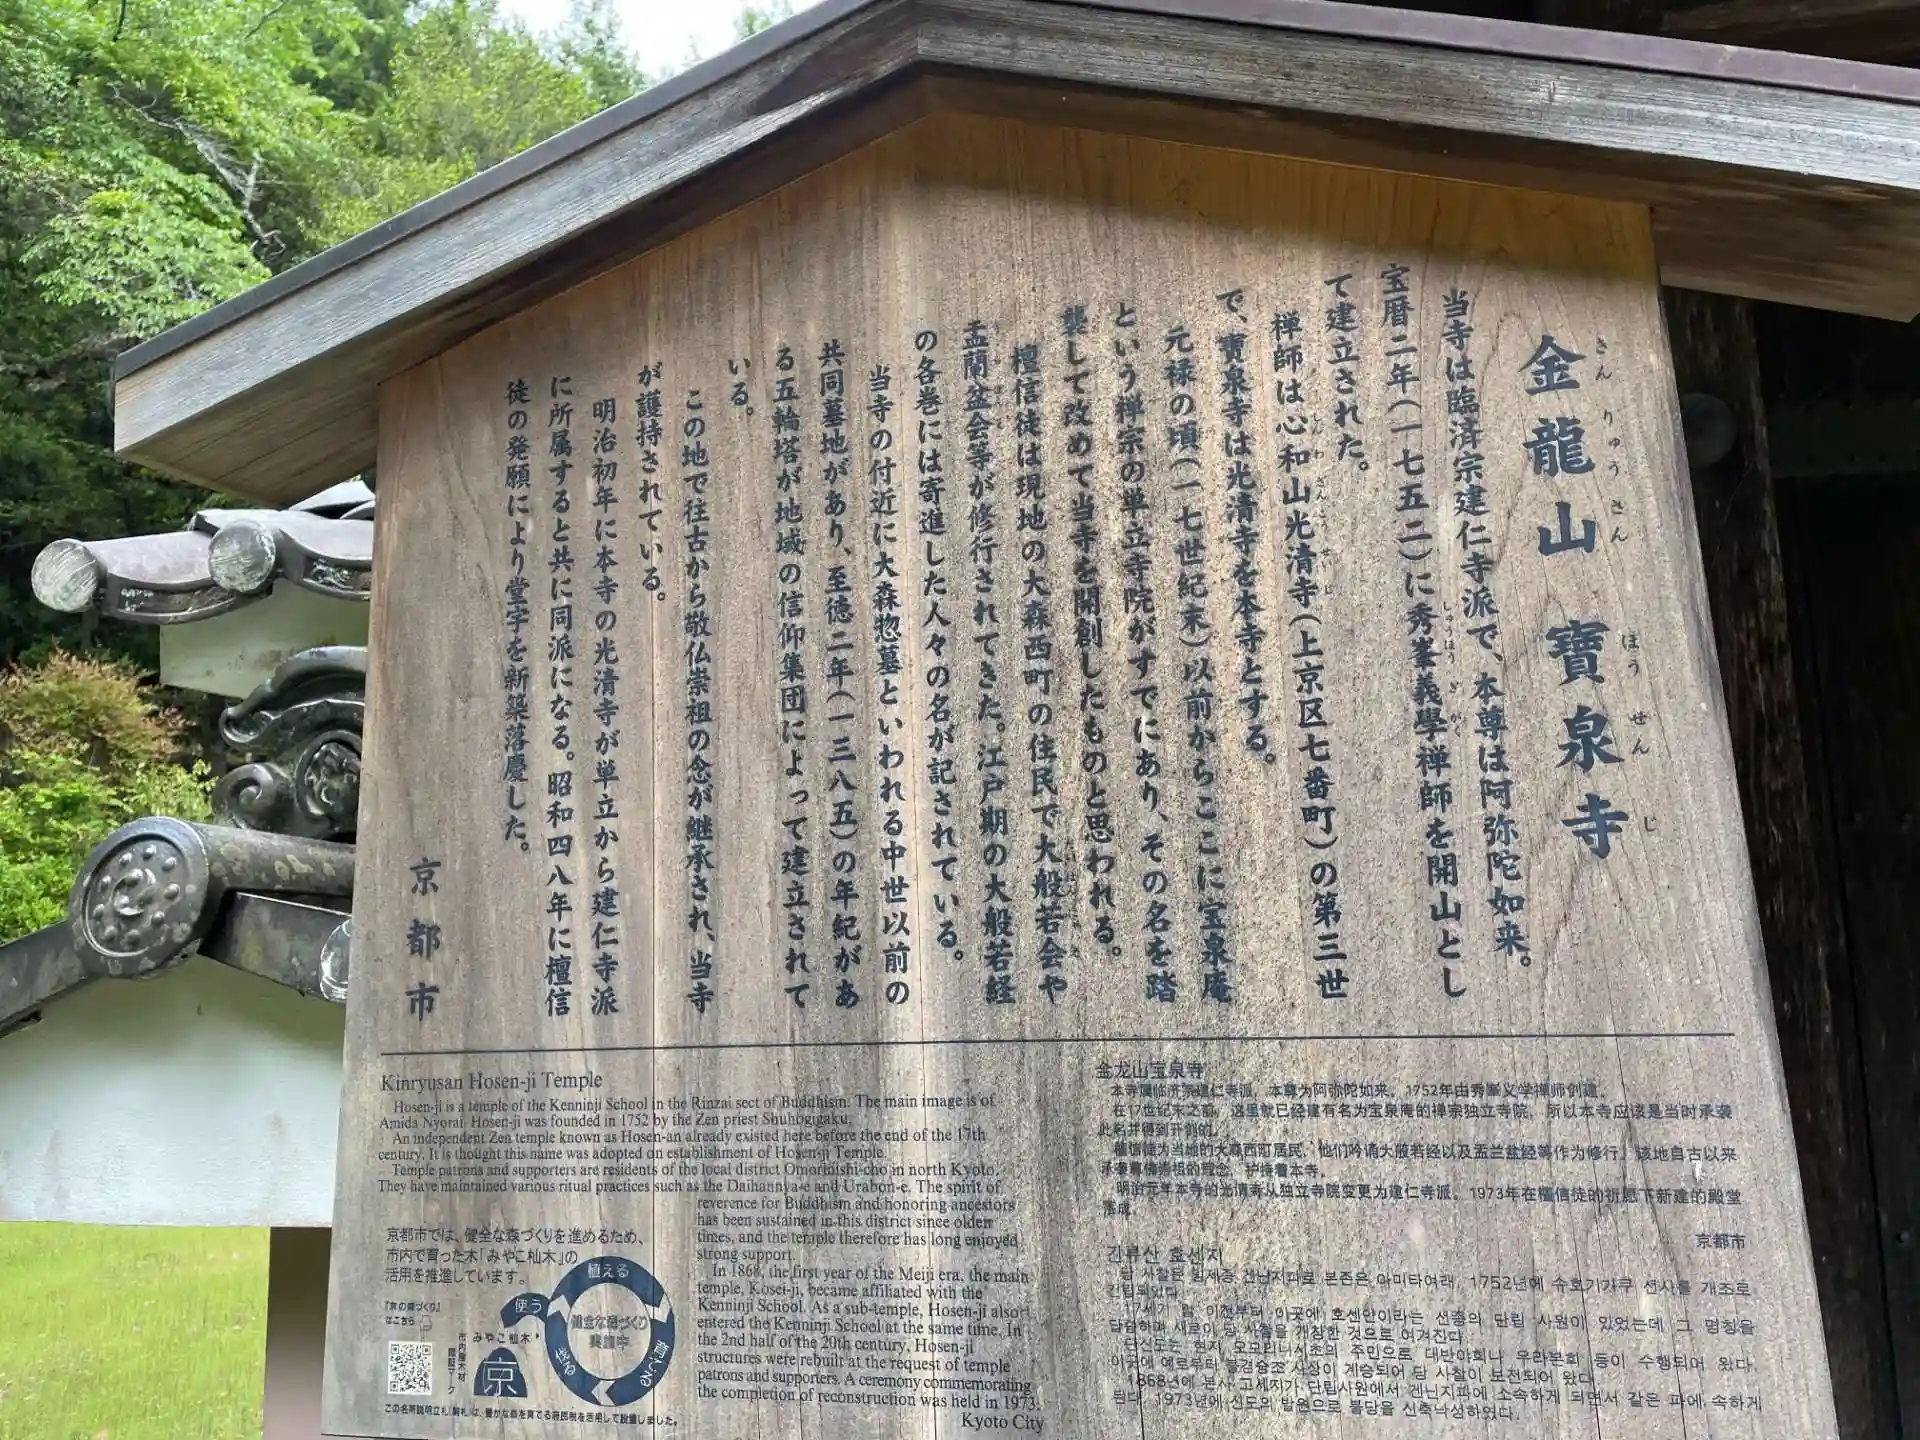 金龍山 寶泉寺
きんりゅうさん ほうせんじ
当寺は臨済宗建仁寺派で、本尊は阿弥陀如来。
宝暦二年(一七五二)に秀峯義學禅師を開山とし
しゅうほう ぎがく
て建立された。
禅師は心和山光清寺(上京区七番町)の第三世
で、寶泉寺は光清寺を本寺とする。
元禄の頃(一七世紀末)以前からここに宝泉庵
という禅宗の単立寺院がすでにあり、その名を踏
襲して改めて当寺を開創したものと思われる。
檀信徒は現地の大森西町の住民で大般若会や
盂蘭盆会等が修行されてきた。江戸期の大般若経
の各巻には寄進した人々の名が記されている。
当寺の付近に大森惣墓といわれる中世以前の
共同墓地があり、至徳二年(一三八五)の年紀があ
る五輪塔が地域の信仰集団によって建立されて
いる。
この地で往古から敬仏崇祖の念が継承され、当寺
が護持されている。
明治初年に本寺の光清寺が単立から建仁寺派
に所属すると共に同派になる。昭和四八年に檀信
徒の発願により堂宇を新築落慶した。
京都市
Kinryusan Hosen-ji Temple
Hosen-ji is a temple of the Kenninji School in the Rinzai sect of Buddhism. The main image is of
Amida Nyorai. Hosen-ji was founded in 1752 by the Zen priest Shuhogigaku.
An independent Zen temple known as Hosen-an already existed here before the end of the 17th
century. It is thought this name was adopted on establishment of Hosen-ji Temple.
Temple patrons and supporters are residents of the local district Omorinishi-cho in north Kyoto.
They have maintained various ritual practices such as the Daihannya-e and Urabon-e. The spirit of
reverence for Buddhism and honoring ancestors
has been sustained in this district since olden
times, and the temple therefore has long enjoyed
strong support.
In 1868, the first year of the Meiji era, the main
temple, Kosei-ji, became affiliated with the
Kenninji School. As a sub-temple, Hosen-ji also
entered the Kenninji School at the same time. In
the 2nd half of the 20th century, Hosen-ji
structures were rebuilt at the request of temple
patrons and supporters. A ceremony commemorating
the completion of reconstruction was held in 1973.
Kyoto City
京都市では、健全な森づくりを進めるため、
市内で育った木「みやこ杣木」の
活用を推進しています。
「京の森づくり」
はこちら
市内産木材
認証マーク
みやこ杣木
京
植える
育てる
伐る
使う
健全な森づくり
実施中
この名所説明立札(駒札)は、豊かな森を育てる府民税を活用して設置しました。
金龙山宝泉寺
本寺属临济宗建仁寺派，本尊为阿弥陀如来。1752年由秀峯义学禅师创建。
在17世纪末之前，这里就已经建有名为宝泉庵的禅宗独立寺院，所以本寺应该是当时承袭
此名并得到开创的。
檀信徒为当地的大森西町居民，他们吟诵大般若经以及盂兰盆经等作为修行。该地自古以来
承袭尊佛崇祖的理念，护持着本寺。
明治元年本寺的光清寺从独立寺院变更为建仁寺派。1973年在檀信徒的祈愿下新建的殿堂
落成。
京都市
긴류산 호센지
당 사찰은 임제종 겐닌지파로 본존은 아미타여래, 1752년에 슈호기가쿠 선사를 개조로
건립되었다.
17세기 말 이전부터 이곳에 호센안이라는 선종의 단립 사원이 있었는데 그 명칭을
답습하며 새로이 당 사찰을 개창한 것으로 여겨진다.
단신도는 현지 오모리니시초의 주민으로 대반야회나 우라본회 등이 수행되어 왔다.
이곳에 예로부터 불경숭조 사상이 계승되어 당 사찰이 보전되어 왔다.
1868년에 본사 고세지가 단립사원에서 겐닌지파에 소속하게 되면서 같은 파에 속하게
된다. 1973년에 신도의 발원으로 불당을 신축낙성하였다.